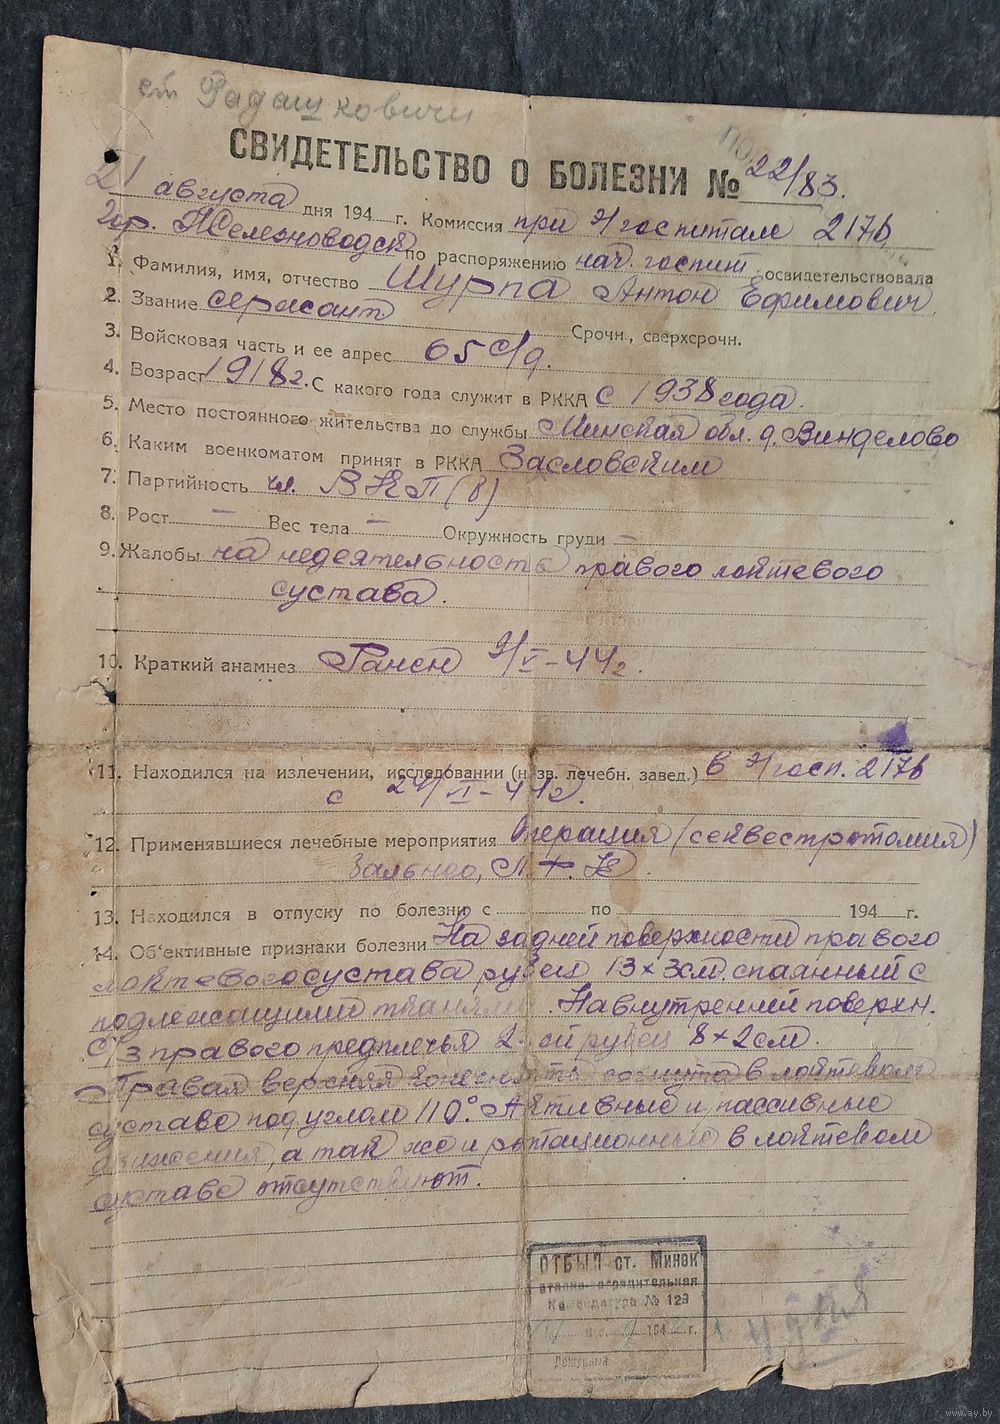 ст Радашковичи
СВИДЕТЕЛЬСТВО О БОЛЕЗНИ № 22/83.
21 августа дня 194 г. Комиссия при э/госпитале 2176
гор. Железноводск по распоряжению нач. госпит. освидетельствовала
1. Фамилия, имя, отчество Шурпа Антон Ефимович
2. Звание сержант Срочн., сверхсрочн.
3. Войсковая часть и ее адрес 65 с/д.
4. Возраст 1918 г. С какого года служит в РККА с 1938 года.
5. Место постоянного жительства до службы Минская обл. д. Винделово
6. Каким военкоматом принят в РККА Заславским
7. Партийность чл. ВКП(б)
8. Рост — Вес тела — Окружность груди —
9. Жалобы на недеятельность правого локтевого
сустава.
10. Краткий анамнез Ранен 9/V-44 г.
11. Находился на излечении, исследовании (назв. лечебн. завед.) в э/госп. 2176
с 24/VI-44 г.
12. Применявшиеся лечебные мероприятия Операция (секвестротомия)
13. Находился в отпуску по болезни с по 194 г.
14. Об'ективные признаки болезни На задней поверхности правого
локтевого сустава рубец 13×3 см. спаянный с
подлежащими тканями. На внутренней поверхн.
с/з правого предплечья 2-ой рубец 8×2 см.
Правая верхняя конечность согнута в локтевом
суставе под углом 110°. Активные и пассивные
движения, а так же и ротационные в локтевом
суставе отсутствуют.
ОТБЫЛ ст. Минск
Комендатура № 129
194 г.
Дежурный
www.ay.by